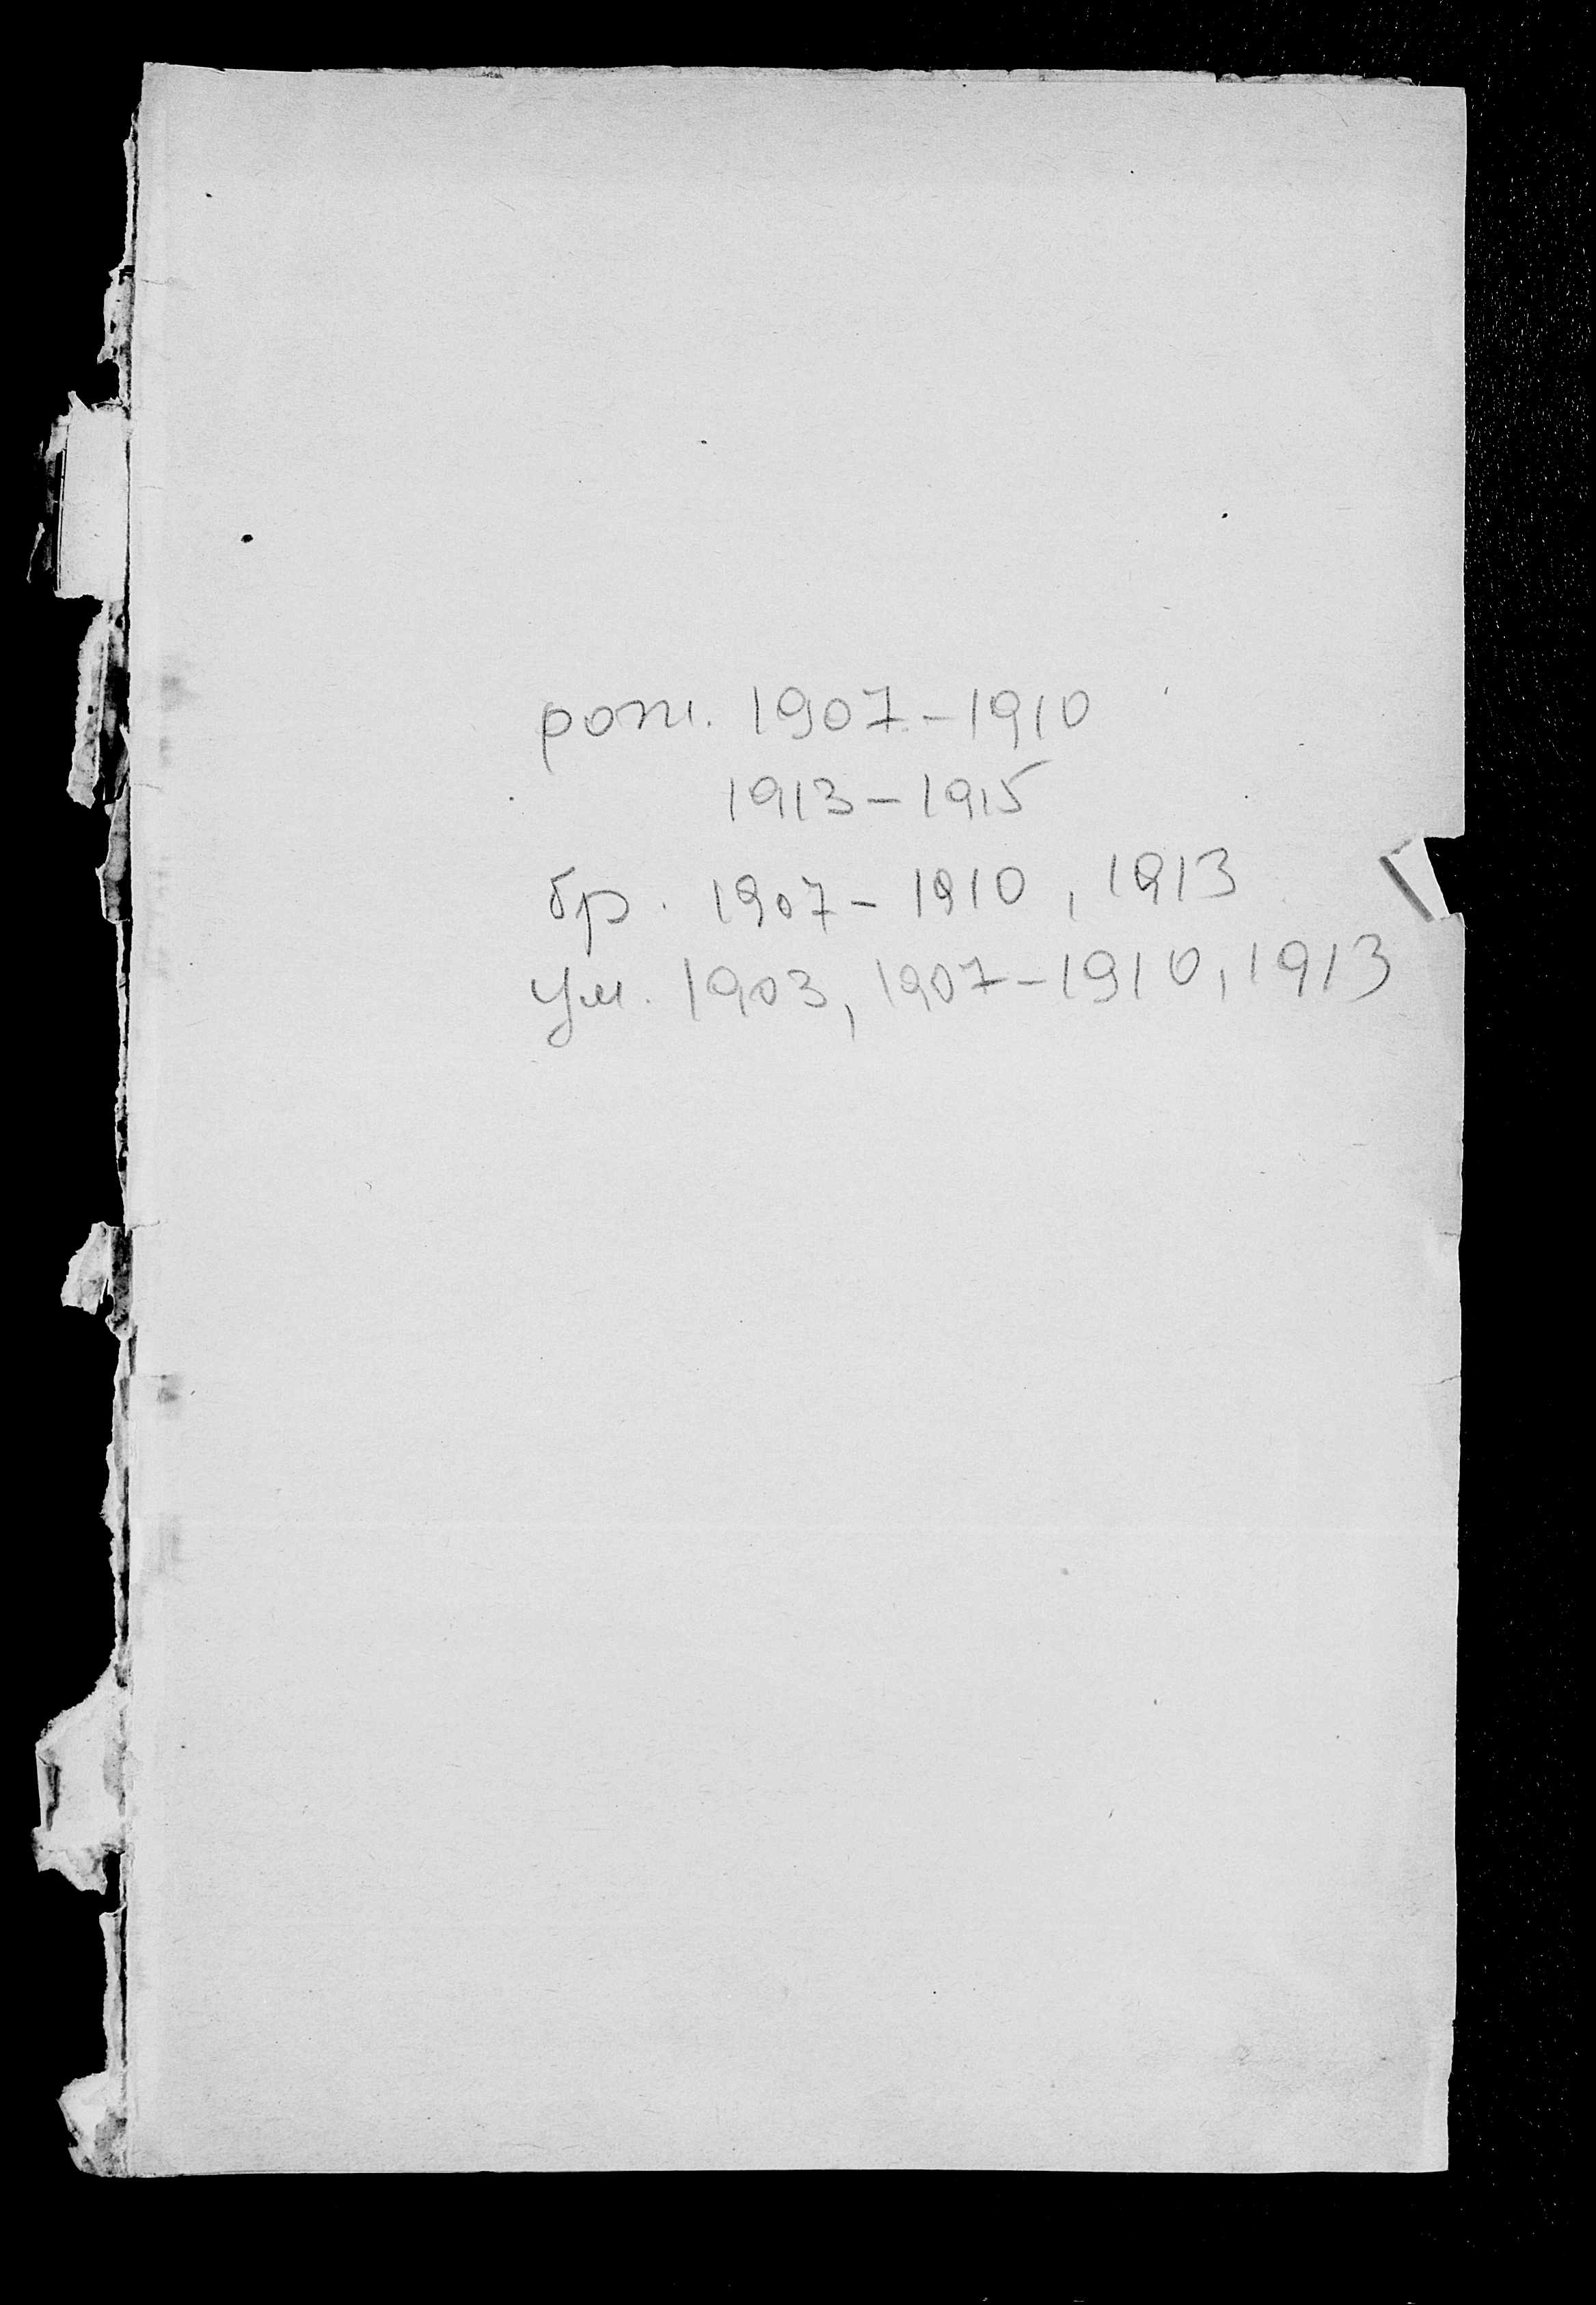 рож. 1907-1910
1913-1915
бр. 1907-1910, 1913
Ум. 1903, 1907-1910, 1913